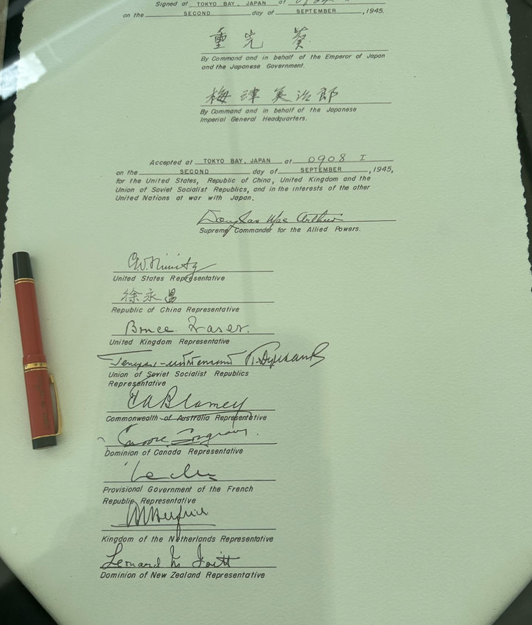 Signed at TOKYO BAY, JAPAN at
on the SECOND day of SEPTEMBER, 1945.
重光 葵
By Command and in behalf of the Emperor of Japan
and the Japanese Government.
梅津美治郎
By Command and in behalf of the Japanese
Imperial General Headquarters.
Accepted at TOKYO BAY, JAPAN at 0908 I
on the SECOND day of SEPTEMBER, 1945,
for the United States, Republic of China, United Kingdom and the
Union of Soviet Socialist Republics, and in the interests of the other
United Nations at war with Japan.
Douglas MacArthur
Supreme Commander for the Allied Powers.
C.W. Nimitz
United States Representative
徐永昌
Republic of China Representative
Bruce Fraser.
United Kingdom Representative
Union of Soviet Socialist Republics
Representative
T.A. Blamey
Commonwealth of Australia Representative
Dominion of Canada Representative
Provisional Government of the French
Republic Representative
Kingdom of the Netherlands Representative
Leonard M. Isitt
Dominion of New Zealand Representative